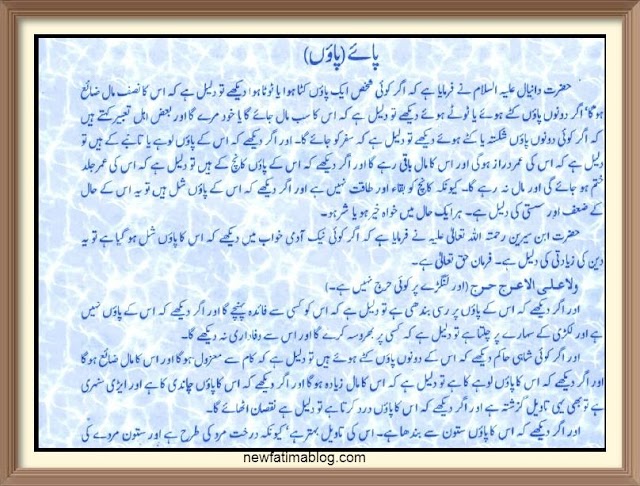 پائے (پاؤں)
حضرت دانیال علیہ السلام نے فرمایا ہے کہ اگر کوئی شخص ایک پاؤں کٹا ہوا یا ٹوٹا ہوا دیکھے تو دلیل ہے کہ اس کا نصف مال ضائع
ہوگا' اگر دونوں پاؤں کٹے ہوئے یا ٹوٹے ہوئے دیکھے تو دلیل ہے کہ اس کا سب مال جائے گا یا خود مرے گا اور بعض اہل تعبیر کہتے ہیں
کہ اگر کوئی دونوں پاؤں شکستہ یا کٹے ہوئے دیکھے تو دلیل ہے کہ سفر کو جائے گا۔ اور اگر دیکھے کہ اس کے پاؤں لوہے یا تانبے کے ہیں تو
دلیل ہے کہ اس کی عمر دراز ہوگی اور اس کا مال باقی رہے گا اور اگر دیکھے کہ اس کے پاؤں کانچ کے ہیں تو دلیل ہے کہ اس کی عمر جلد
ختم ہو جائے گی اور مال نہ رہے گا۔ کیونکہ کانچ کو بقاء اور طاقت نہیں ہے اور اگر دیکھے کہ اس کے پاؤں شل ہیں تو یہ اس کے حال
کے ضعف اور سستی کی دلیل ہے۔ ہر ایک حال میں خواہ خیر ہو یا شر ہو۔
حضرت ابن سیرین رحمتہ اللہ تعالیٰ علیہ نے فرمایا ہے کہ اگر کوئی نیک آدمی خواب میں دیکھے کہ اس کا پاؤں شل ہو گیا ہے تو یہ
دین کی زیادتی کی دلیل ہے۔ فرمان حق تعالیٰ ہے۔
ولا علی الاعرج حرج (اور لنگڑے پر کوئی حرج نہیں ہے۔)
اور اگر دیکھے کہ اس کے پاؤں پر رسی بندھی ہے تو دلیل ہے کہ اس کو کسی سے فائدہ پہنچے گا اور اگر دیکھے کہ اس کے پاؤں نہیں
ہے اور لکڑی کے سہارے پر چلتا ہے تو دلیل ہے کہ کسی پر بھروسہ کرے گا اور اس سے وفاداری نہ دیکھے گا۔
اور اگر کوئی شاہی حاکم دیکھے کہ اس کے دونوں پاؤں کٹے ہوئے ہیں تو دلیل ہے کہ کام سے معزول ہوگا اور اس کا مال ضائع ہوگا
اور اگر دیکھے کہ اس کا پاؤں لوہے کا ہے تو دلیل ہے کہ اس کا مال زیادہ ہوگا اور اگر دیکھے کہ اس کا پاؤں چاندی کا ہے اور ایڑی سنہری
ہے تو بھی یہی تاویل گزشتہ ہے اور اگر دیکھے کہ اس کا پاؤں درد کرتا ہے تو دلیل ہے نقصان اٹھائے گا۔
اور اگر دیکھے کہ اس کا پاؤں ستون سے بندھا ہے۔ اس کی تاویل بہتر ہے' کیونکہ درخت مرد کی طرح ہے اور ستون مردے کی
newfatimablog.com